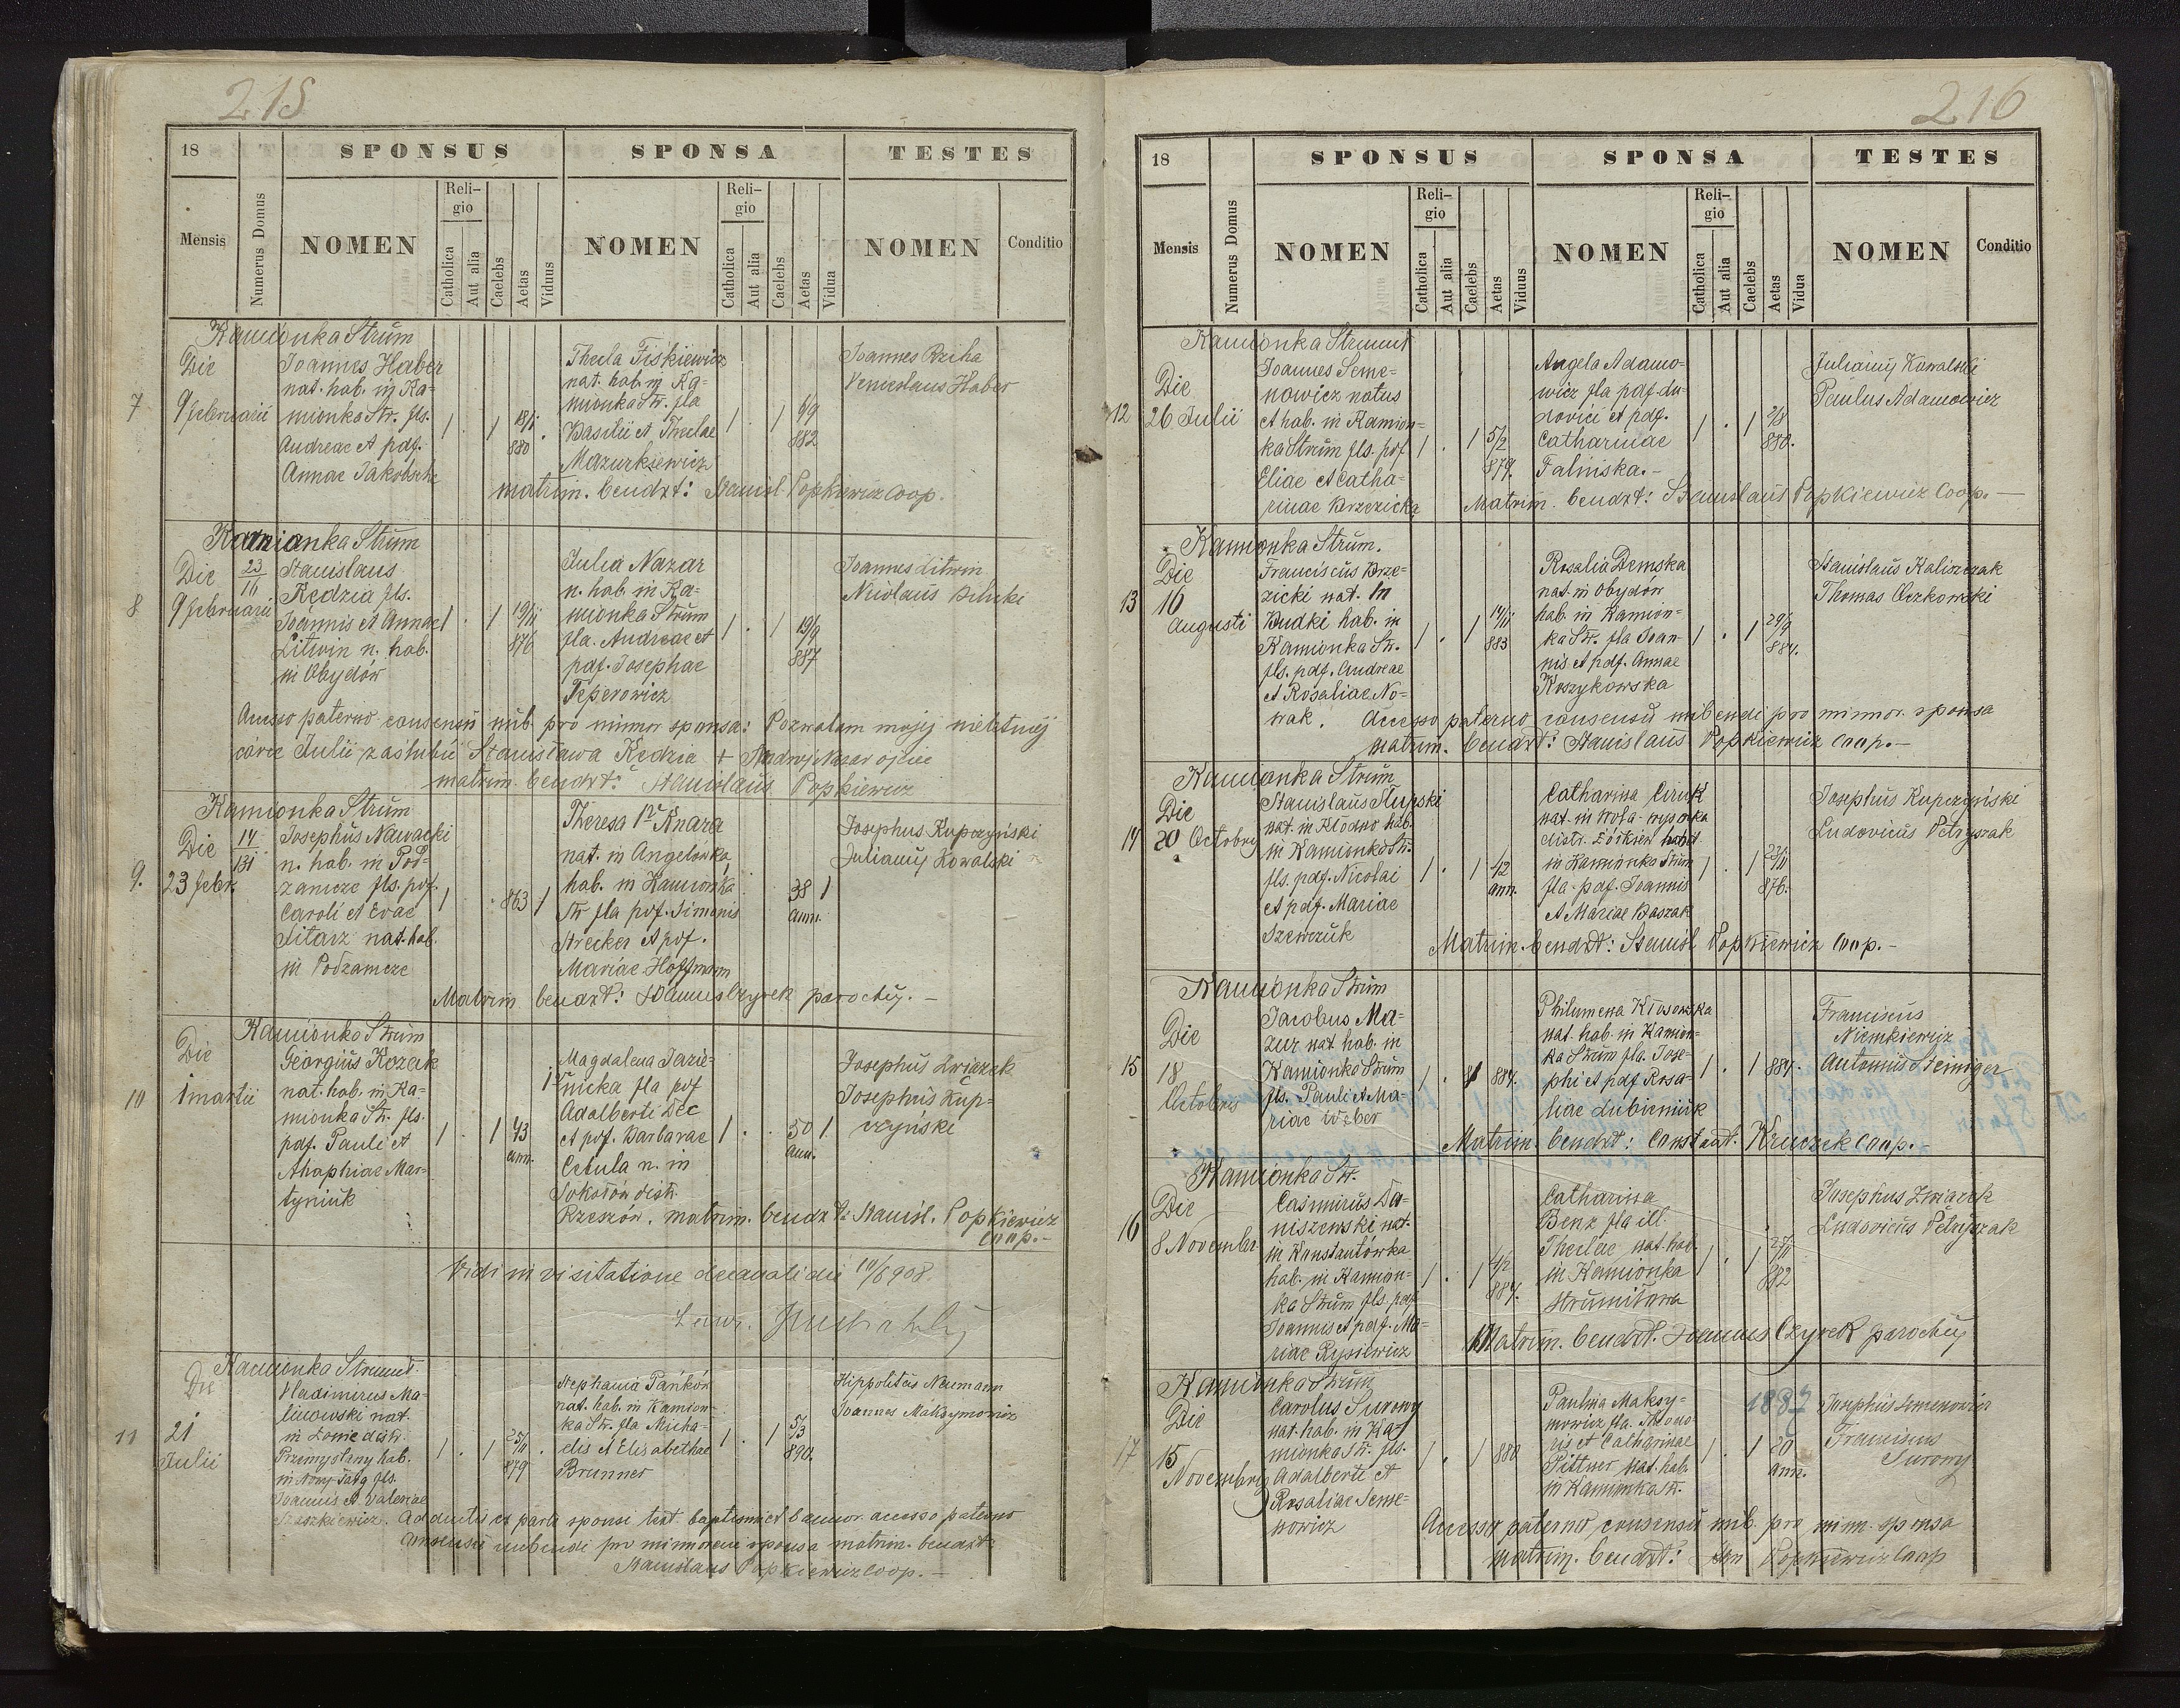 215
18
SPONSUS
SPONSA
TESTES
Mensis
Numerus Domus
NOMEN
Religio
Catholica
Aut alia
Caelebs
Aetas
Viduus
NOMEN
Religio
Catholica
Aut alia
Caelebs
Aetas
Vidua
NOMEN
Conditio
Kamionka Strum
7
Die
9 februarii
Joannes Haber
nat. hab. in Ka-
mionka Str. fls.
Andreae et pdf.
Annae Jakobsche
1 . 1 18/1 880 .
Thecla Fiśkiewicz
nat. hab. in Ka-
mionka Str. fla
Basilii et Theclae
Mazurkiewicz
1 . 1 6/9 882
Joannes Rziha
Venceslaus Haber
matrim. benedxt: Stanisl Popkiewicz Coop.
Kamionka Strum
8
Die
9 februarii
23/10
Stanislaus
Kędzia fls.
Joannis et Annae
Litwin n. hab.
in Obydów
1 . 1 19/11 876
Julia Nazar
n. hab. in Ka-
mionka Strum
fla. Andreae et
pdf. Josephae
Teperowicz
1 . 1 19/9 887
Joannes Litwin
Nicolaus Bilicki
Accesso paterno consensu nub. pro minor sponsa: Pozwalam mojej nieletniej
córce Julii zaślubić Stanisława Kędzia + Andrzej Nazar ojciec
matrim. benedxt: Stanislaus Popkiewicz
Kamionka Strum
9.
Die
23 febr
14/131
Josephus Nawacki
n. hab. in Pod-
zamcze fls. pdf.
Caroli et Evae
Sitarz nat. hab.
in Podzamcze
1 . 863 1
Theresa 1º Knara
nat. in Angelówka
hab. in Kamionka
Str fla pdf. Simonis
Strecker et pdf.
Mariae Hoffmann
38 1
ann.
Josephus Kupczyński
Julianus Kowalski
Matrim benedxt: Joannes Czyrek parochus. —
Kamionka Strum
10
Die
1 martii
Georgius Kozak
nat. hab. in Ka-
mionka St. fls.
pdf. Pauli et
Ahaphiae Mar-
tyniuk
1 . 1 43
ann.
Magdalena Jazie-
nicka fla pdf
Adalberti Dec
et pdf. Barbarae
Cebula n. in
Sokołów distr.
Rzeszów. matrim. benedxt: Stanisl. Popkiewicz
Coop. —
1 . . 50 1
ann.
Josephus Zwiazek
Josephus Kup-
czyński
Vidi in visitatione decanali die 10/6 908.
Kamionka Strumit.
11
Die
21
Julii
Vladimirus Ma-
linowski nat.
in Łonie distr.
Przemyślany hab.
fls.
Joannis et Valeriae
1 . 1 25/11 879 .
Stephania Pańków
nat. hab. in Kamion-
ka Str. fla Micha-
elis et Elisabethae
Brunner
1 . 1 5/3 890.
Hippolitus Neumann
Joannes Maksymowicz
Adductis ex parte sponsi test. baptismi et bannor. accesso paterno
consensu nubendi pro minorenni sponsa matrim. benedxt:
Stanislaus Popkiewicz Coop. —
216
18
SPONSUS
SPONSA
TESTES
Mensis
Numerus Domus
NOMEN
Religio
Catholica
Aut alia
Caelebs
Aetas
Viduus
NOMEN
Religio
Catholica
Aut alia
Caelebs
Aetas
Vidua
NOMEN
Conditio
Kamionka Strumit
12
Die
26 Julii
Joannes Seme-
nowicz natus
et hab. in Kamion-
ka Strum fls. pdf
Eliae et Catha-
rinae Brzezicka
1 . 1 5/2 879.
Angela Adamo-
wicz fla pdf. Lu-
dovici et pdf.
Catharinae
Falińska. —
1 . 1 2/8 880.
Julianus Kowalski
Paulus Adamowicz
Matrim. benedxt: Stanislaus Popkiewicz Coop. —
Kamionka Strum.
13
Die
16
Augusti
Franciscus Brze-
zicki nat. in
Budki hab. in
Kamionka St.
fls. pdf. Andreae
et Rosaliae No-
wak.
1 . 1 14/11 883
Rosalia Demska
nat. in Obydów
hab. in Kamion-
ka St. fla Joan-
nis et pdf. Annae
Koszykowska
1 . 1 29/9 884.
Stanislaus Kaliszczak
Thomas Oczkowski
Accesso paterno consensu nubendi pro minor. sponsa
matrim. benedxt: Stanislaus Popkiewicz Coop. —
Kamionka Strum
14
Die
20 Octobris
Stanislaus Słupski
nat. in Kłodno hab.
in Kamionka St.
fls. pdf. Nicolai
et pdf. Mariae
Szewczuk
1 . 1 42
ann.
Catharina Ciruk
nat. in Wola-wysocka
distr. Żółkiew habit
in Kamionka Strum
fla. pdf. Joannis
et Mariae Baszak
1 . 1 22/11 876.
Josephus Kupczyński
Ludovicus Petryszak
Matrim. benedxt: Stanisl Popkiewicz Coop. —
Kamionka Strum
15
Die
18
Octobris
Jacobus Ma-
zur nat. hab. in
Kamionka Strum
fls. Pauli et Ma-
riae Weber
1 . 1 884.
Philumena Kłosowska
nat. hab. in Kamion-
ka Strum fla. Jose-
phi et pdf Rosa-
liae Lubieniuk
1 . 1 884.
Franciscus
Niemkiewicz
Antonius Steiniger
Matrim. benedxt: Constant. Kruczek Coop. —
Kamionka Str.
16
Die
8 Novembr
Casimirus Da-
niszewski nat.
in Konstantówka
hab. in Kamion-
ka Strum fls. pdf.
Joannis et pdf. Ma-
riae Rysiewicz
1 . 1 4/2 884.
Catharina
Benz fla ill.
Theclae nat. hab.
in Kamionka
Strumiłowa
1 . 1 25/11 882
Josephus Zwiazek
Ludovicus Petryszak
Matrim. benedxt. Joannes Czyrek parochus
Kamionka Strum
17
Die
15
Novembris
Carolus Surowy
nat. hab. in Ka-
mionka St. fls.
Adalberti et
Rosaliae Seme-
nowicz
1 . 1 880
Paulina Maksy-
mowicz fla. Theodo-
ris et Catharinae
Pittner nat. hab.
in Kamionka St.
1887
1 . 1 20
ann.
Josephus Semenowicz
Franciscus
Surowy
Accesso paterno consensu nub. pro min. sponsa
matrim. benedxt: Stn Popkiewicz Coop